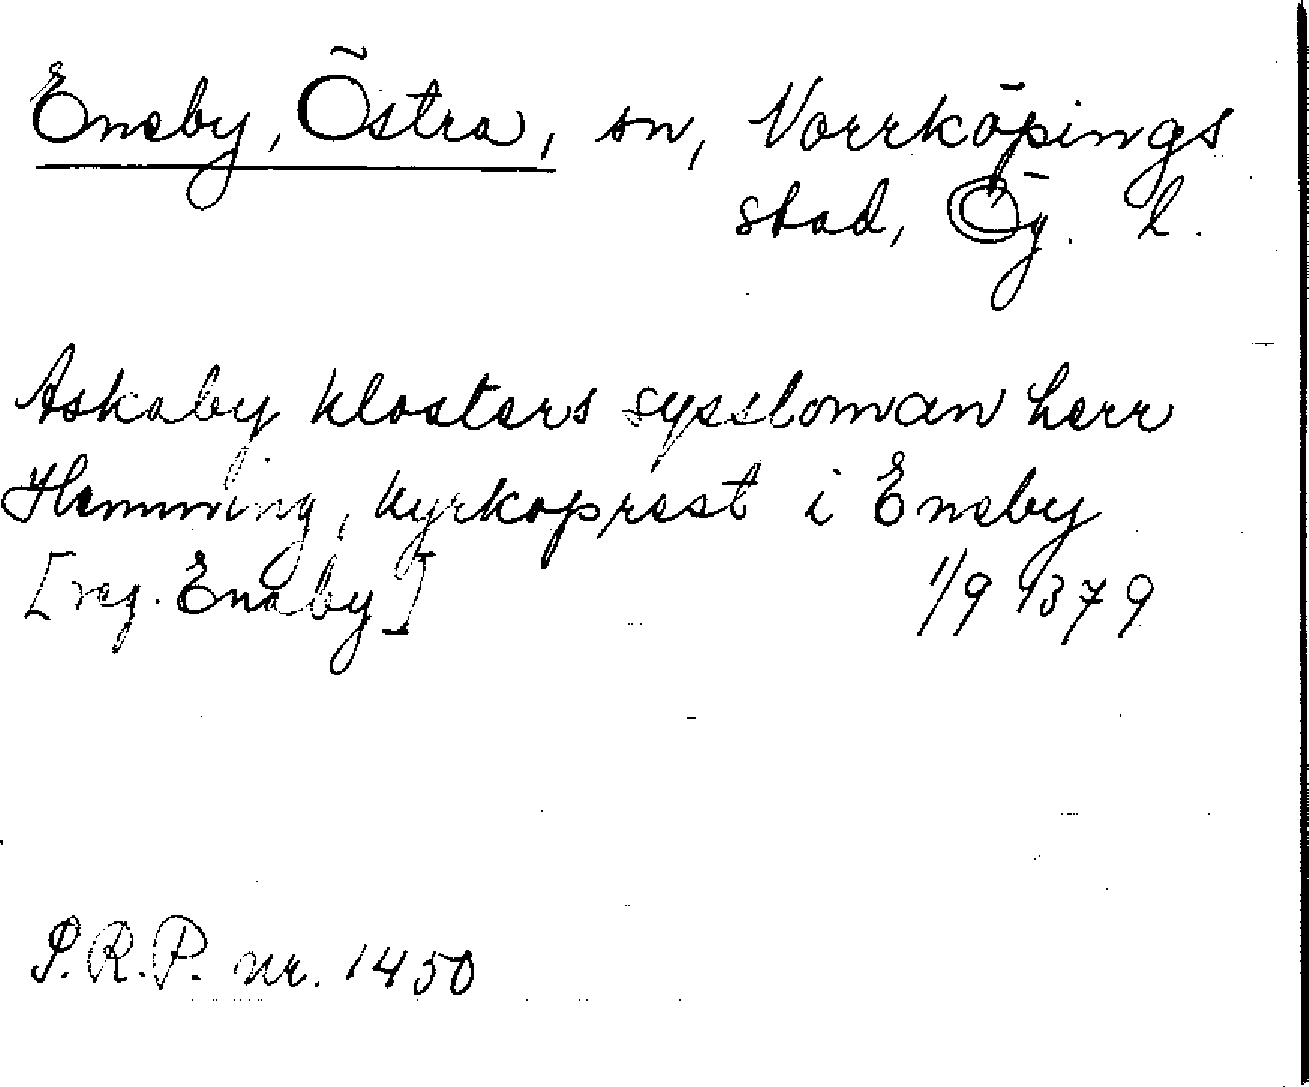 Eneby, Östra, sn, Norrköpings
stad, Ög. l.
Askaby klosters syssloman herr
Hemming, kyrkoprest i Eneby
[reg. Enaby] 1/9 1379
S.R.P. nr. 1450